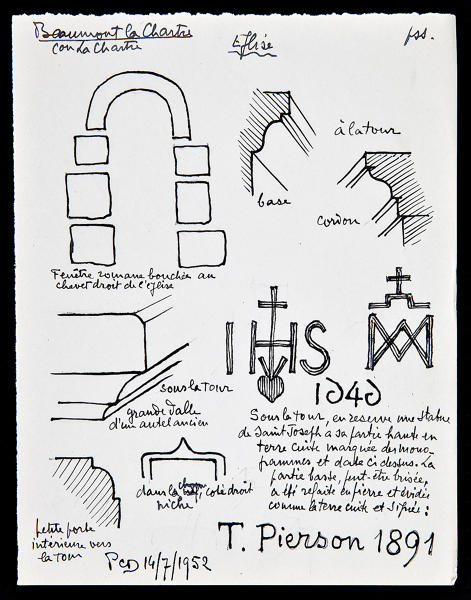 Beaumont la Chartre
con La Chartre
Eglise
pss.
à la tour
base
cordon
Fenêtre romane bouchée au
chevet droit de l'église
IHS
1646
sous la tour
grande dalle
d'un autel ancien
dans la
, coté droit
niche
petite porte
intérieure vers
la tour
Sous la tour, en reserve une statue
de Saint Joseph a sa partie haute en
terre cuite marquée des mono-
grammes et date ci dessus. La
partie basse, peut-être brisée,
a été refaite en pierre et évidée
comme la terre cuite et signée :
T. Pierson 1891
PCD 14/7/1952